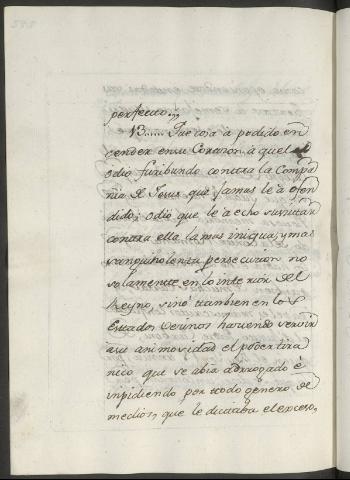 perfecto.,,
13..... Que cosa á podido en
cender en su Corazon à quel
odio furibundo contra la Compa
ñia de Jesus que jamas le á ofen
dido; odio que le a echo suscitar
contra ella la mas iniqua, y mas
sanguinolenta persecucion no
solamente en lo interior del
Reyno, sinó tambien en los
Estados vecinos haviendo servir
asu animosidad el poder tira
nico que se abia adrrogado è
inpidiendo por todo genero de
medios, que le dictaba el exceso,